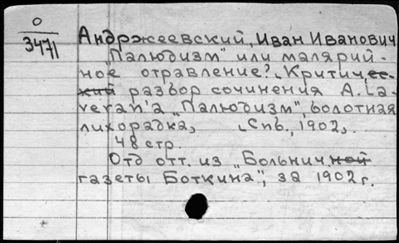 О
3471
Андржеевский, Иван Иванович
„Палюдизм" или малярий-
ное отравление? Критичес-
кий разбор сочинения A. La-
veran'a „Палюдизм", болотная
лихорадка, Спб., 1902,.
48 стр.
Отд отт. из „Больничной
газеты Боткина", за 1902 г.